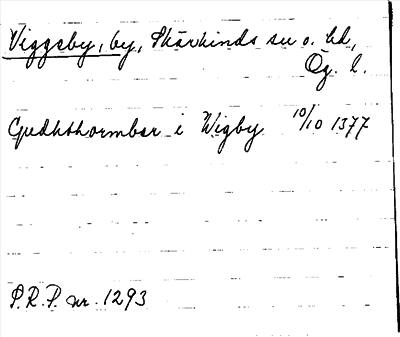 Viggeby, by, Skärkinds sn o. hd,
Ög. l.
Gudhthormber i Wigby 10/10 1377
P.R.P. nr. 1293